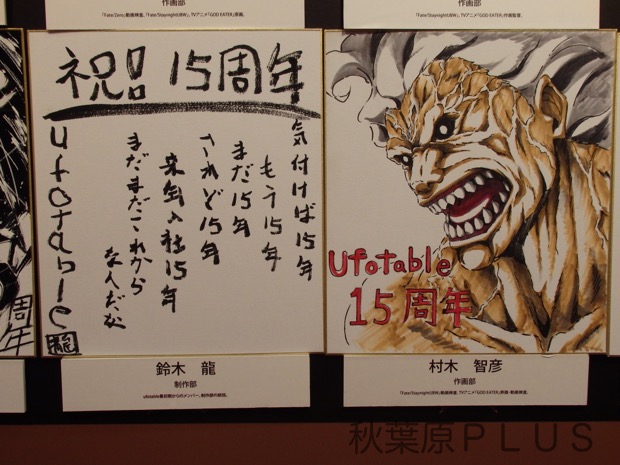 作画部
『Fate/Zero』動画検査、『Fate/Staynight UBW』、TVアニメ『GOD EATER』原画。
作画部
『Fate/Staynight UBW』、TVアニメ『GOD EATER』作画監督。
祝!! 15周年
気付けば15年
もう15年
まだ15年
されど15年
来年入社15年
まだまだこれから
なんだな
ufotable
龍
周年
Ufotable
15周年
鈴木 龍
制作部
ufotable最初期からのメンバー。制作部の部長。
村木 智彦
作画部
『Fate/Staynight UBW』動画検査、TVアニメ『GOD EATER』原画・動画検査。
秋葉原PLUS